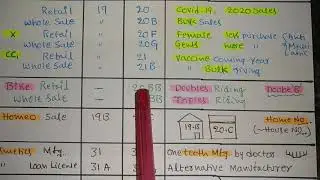 Retail 19 20 Covid-19, 2020 Sales
Whole Sale 20B Bulk Sales
X Retail 20F Female less purchase
Whole Sale 20G Gents more "
CC1 Retail 21 Vaccine coming Year
Whole Sale 21B " Bulk Giving
Bike Retail — 20BB Doubles Riding Double B
Whole Sale — Triples Riding
Homeo Sale 19B 19-B 20-C Home No.
(House No.)
Mfg. 31 One teeth Mfg. by doctor
" Loan License 31A Alternative Manufacturer